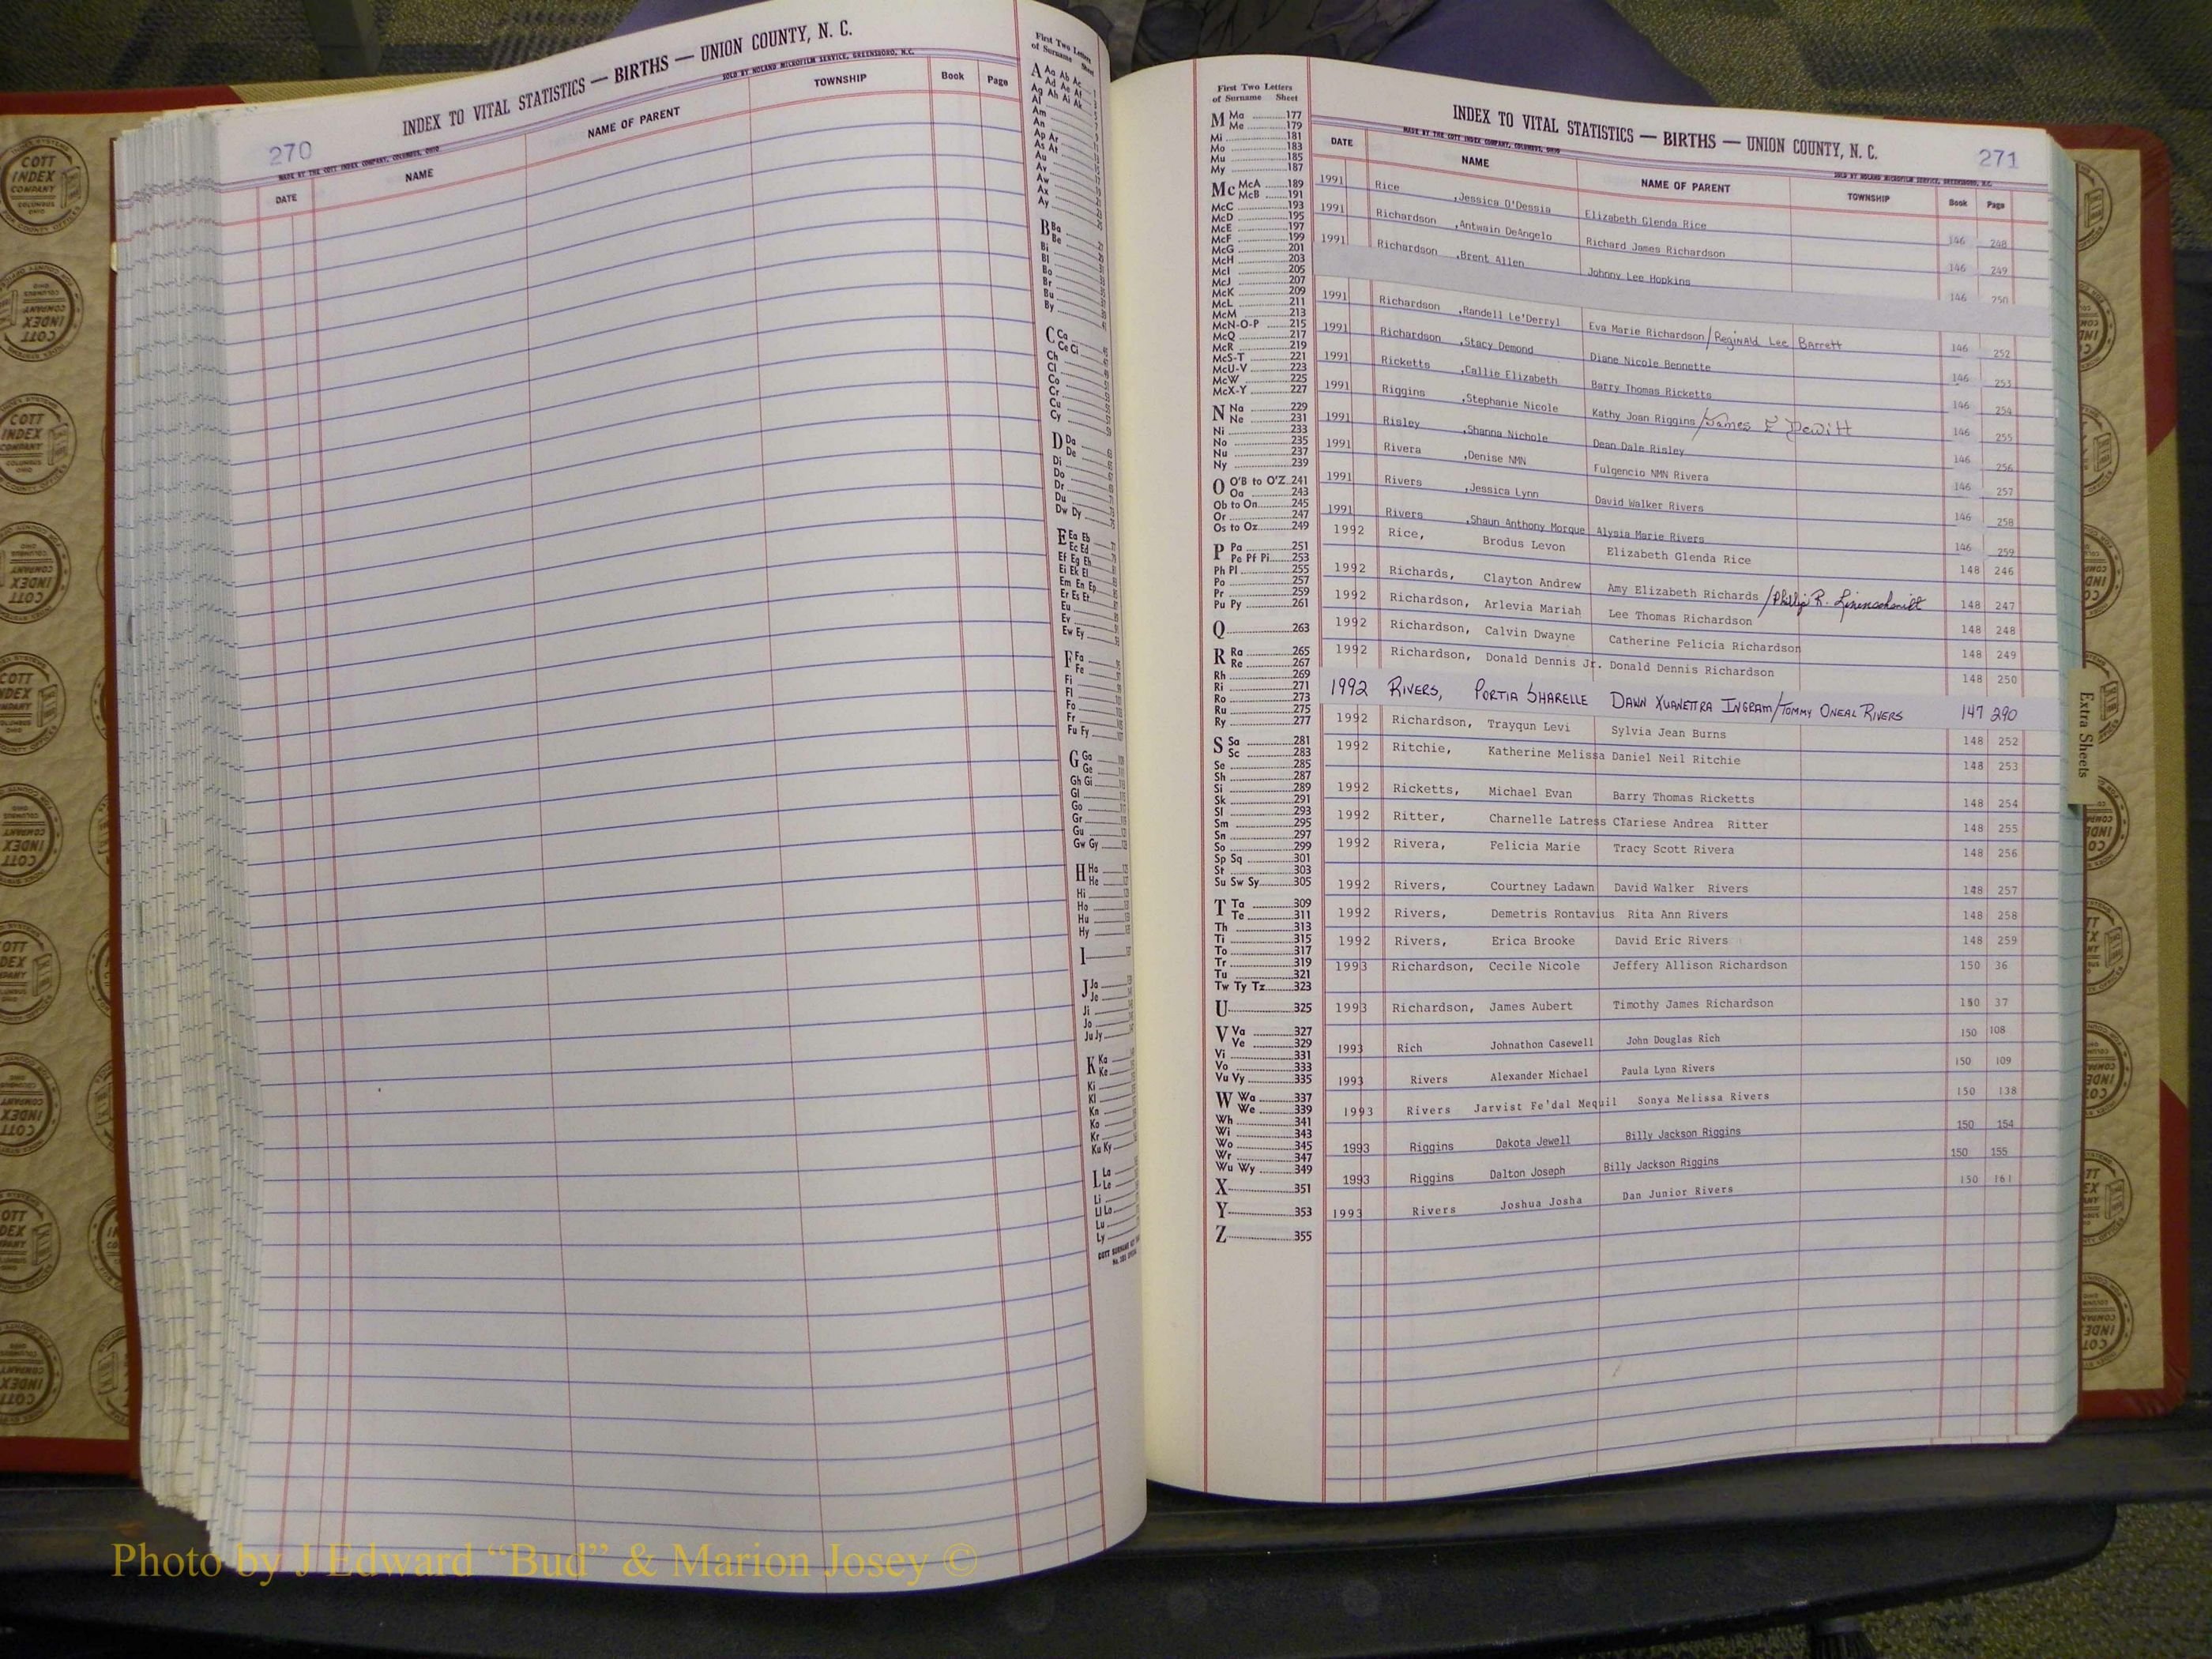 INDEX TO VITAL STATISTICS — BIRTHS — UNION COUNTY, N. C.
270
MADE BY THE COTT INDEX COMPANY, COLUMBUS, OHIO
SOLD BY NOLAND MICROFILM SERVICE, GREENSBORO, N.C.
DATE NAME NAME OF PARENT TOWNSHIP Book Page
First Two Letters
of Surname Sheet
A Aa Ab Ac
Ad Ae Af
Ag Ah Ai Ak
Al
Am
An
Ap Ar
As At
Au
Av
Aw
Ax
Ay
B Ba
Be
Bi
Bl
Bo
Br
Bu
By
C Ca
Ce Ci
Ch
Cl
Co
Cr
Cu
Cy
D Da
De
Di
Do
Dr
Du
Dw Dy
E Ea Eb
Ec Ed
Ef Eg Eh
Ei Ek El
Em En Ep
Er Es Et
Eu
Ev
Ew Ey
F Fa
Fe
Fi
Fl
Fo
Fr
Fu Fy
G Ga
Ge
Gh Gi
Gl
Go
Gr
Gu
Gw Gy
H Ha
He
Hi
Ho
Hu
Hy
I
J Ja
Je
Ji
Jo
Ju Jy
K Ka
Ke
Ki
Kl
Kn
Ko
Kr
Ku Ky
L La
Le
Li
Ll Lo
Lu
Ly
First Two Letters
of Surname Sheet
M Ma 177
Me 179
Mi 181
Mo 183
Mu 185
My 187
Mc McA 189
McB 191
McC 193
McD 195
McE 197
McF 199
McG 201
McH 203
McI 205
McJ 207
McK 209
McL 211
McM 213
McN-O-P 215
McQ 217
McR 219
McS-T 221
McU-V 223
McW 225
McX-Y 227
N Na 229
Ne 231
Ni 233
No 235
Nu 237
Ny 239
O O'B to O'Z 241
Oa 243
Ob to On 245
Or 247
Os to Oz 249
P Pa 251
Pe Pf Pi 253
Ph Pl 255
Po 257
Pr 259
Pu Py 261
Q 263
R Ra 265
Re 267
Rh 269
Ri 271
Ro 273
Ru 275
Ry 277
S Sa 281
Sc 283
Se 285
Sh 287
Si 289
Sk 291
Sl 293
Sm 295
Sn 297
So 299
Sp Sq 301
St 303
Su Sw Sy 305
T Ta 309
Te 311
Th 313
Ti 315
To 317
Tr 319
Tu 321
Tw Ty Tz 323
U 325
V Va 327
Ve 329
Vi 331
Vo 333
Vu Vy 335
W Wa 337
We 339
Wh 341
Wi 343
Wo 345
Wr 347
Wu Wy 349
X 351
Y 353
Z 355
INDEX TO VITAL STATISTICS — BIRTHS — UNION COUNTY, N. C.
271
MADE BY THE COTT INDEX COMPANY, COLUMBUS, OHIO
SOLD BY NOLAND MICROFILM SERVICE, GREENSBORO, N.C.
DATE NAME NAME OF PARENT TOWNSHIP Book Page
1991 Rice ,Jessica O'Dessia Elizabeth Glenda Rice 146 248
1991 Richardson ,Antwain DeAngelo Richard James Richardson 146 249
1991 Richardson ,Brent Allen Johnny Lee Hopkins 146 250
1991 Richardson ,Randell Le'Derryl Eva Marie Richardson/Reginald Lee Barrett 146 252
1991 Richardson ,Stacy Demond Diane Nicole Bennette 146 253
1991 Ricketts ,Callie Elizabeth Barry Thomas Ricketts 146 254
1991 Riggins ,Stephanie Nicole Kathy Joan Riggins/James E Dewitt 146 255
1991 Risley ,Shanna Nichole Dean Dale Risley 146 256
1991 Rivera ,Denise NMN Fulgencio NMN Rivera 146 257
1991 Rivers ,Jessica Lynn David Walker Rivers 146 258
1991 Rivers ,Shaun Anthony Morque Alysia Marie Rivers 146 259
1992 Rice, Brodus Levon Elizabeth Glenda Rice 148 246
1992 Richards, Clayton Andrew Amy Elizabeth Richards /Philip R. 148 247
1992 Richardson, Arlevia Mariah Lee Thomas Richardson 148 248
1992 Richardson, Calvin Dwayne Catherine Felicia Richardson 148 249
1992 Richardson, Donald Dennis Jr. Donald Dennis Richardson 148 250
1992 RIVERS, PORTIA SHARELLE DAWN XUANETTRA INGRAM/TOMMY ONEAL RIVERS 147 290
1992 Richardson, Trayqun Levi Sylvia Jean Burns 148 252
1992 Ritchie, Katherine Melissa Daniel Neil Ritchie 148 253
1992 Ricketts, Michael Evan Barry Thomas Ricketts 148 254
1992 Ritter, Charnelle Latress Clariese Andrea Ritter 148 255
1992 Rivera, Felicia Marie Tracy Scott Rivera 148 256
1992 Rivers, Courtney Ladawn David Walker Rivers 148 257
1992 Rivers, Demetris Rontavius Rita Ann Rivers 148 258
1992 Rivers, Erica Brooke David Eric Rivers 148 259
1993 Richardson, Cecile Nicole Jeffery Allison Richardson 150 36
1993 Richardson, James Aubert Timothy James Richardson 150 37
1993 Rich Johnathon Casewell John Douglas Rich 150 108
1993 Rivers Alexander Michael Paula Lynn Rivers 150 109
1993 Rivers Jarvist Fe'dal Mequil Sonya Melissa Rivers 150 138
1993 Riggins Dakota Jewell Billy Jackson Riggins 150 154
1993 Riggins Dalton Joseph Billy Jackson Riggins 150 155
1993 Rivers Joshua Josha Dan Junior Rivers 150 161
Extra Sheets
COTT
INDEX
COMPANY
COLUMBUS
OHIO
Photo by J Edward “Bud” & Marion Josey ©